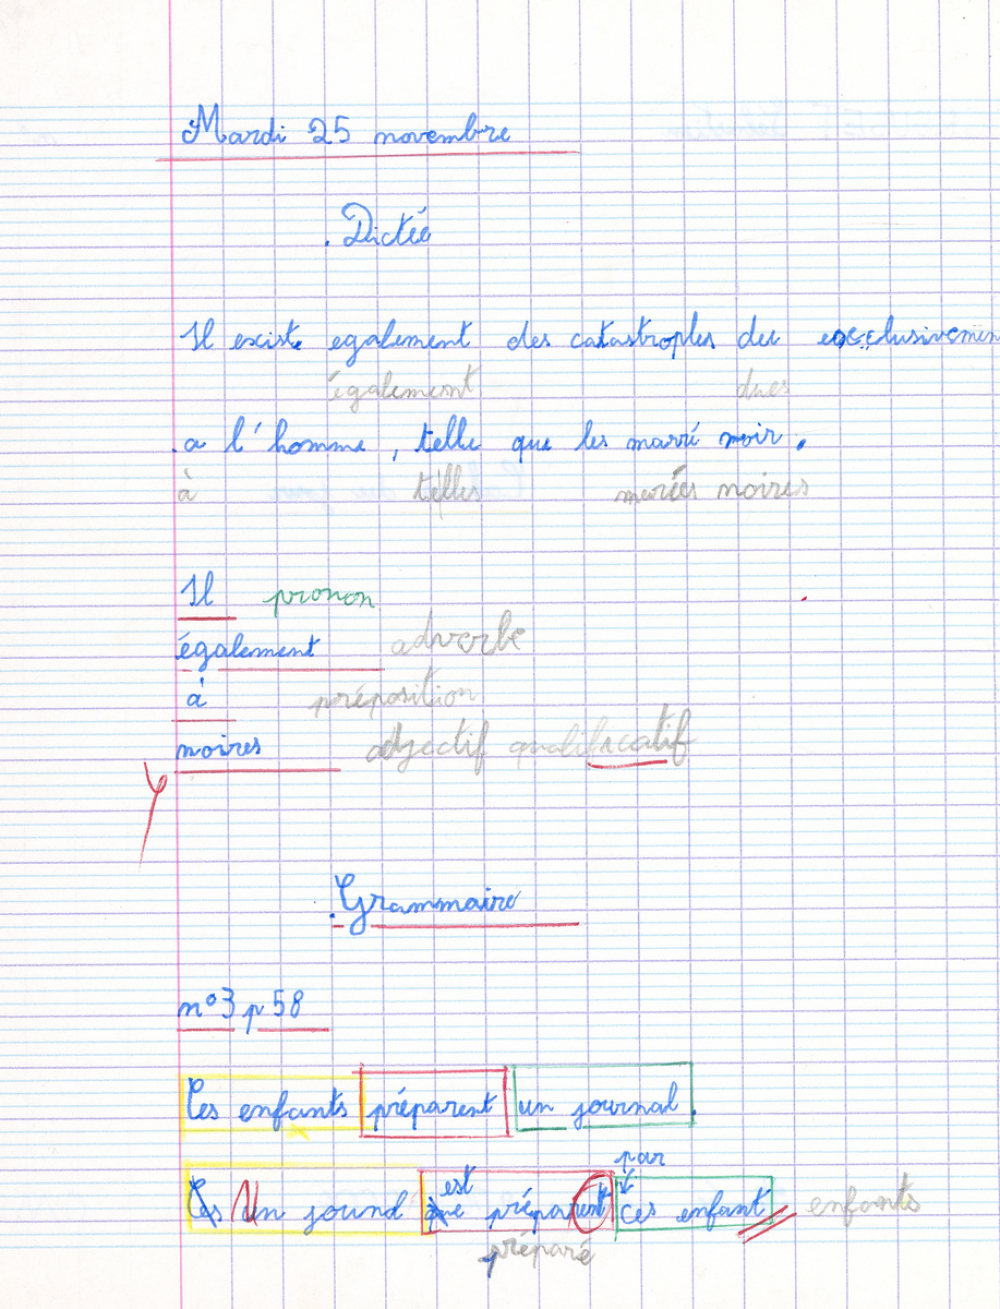 Mardi 25 novembre
. Dictée
Il existe egalement des catastrophes du exclusivemen
également dues
a l'homme, telle que les marré noir.
à telles marées noires
Il pronon
également adverbe
à préposition
noires adjectif qualificatif
. Grammaire
n°3 p 58
Ces enfants préparent un journal.
par
est
Ces Un journal préparent ces enfant enfants
préparé